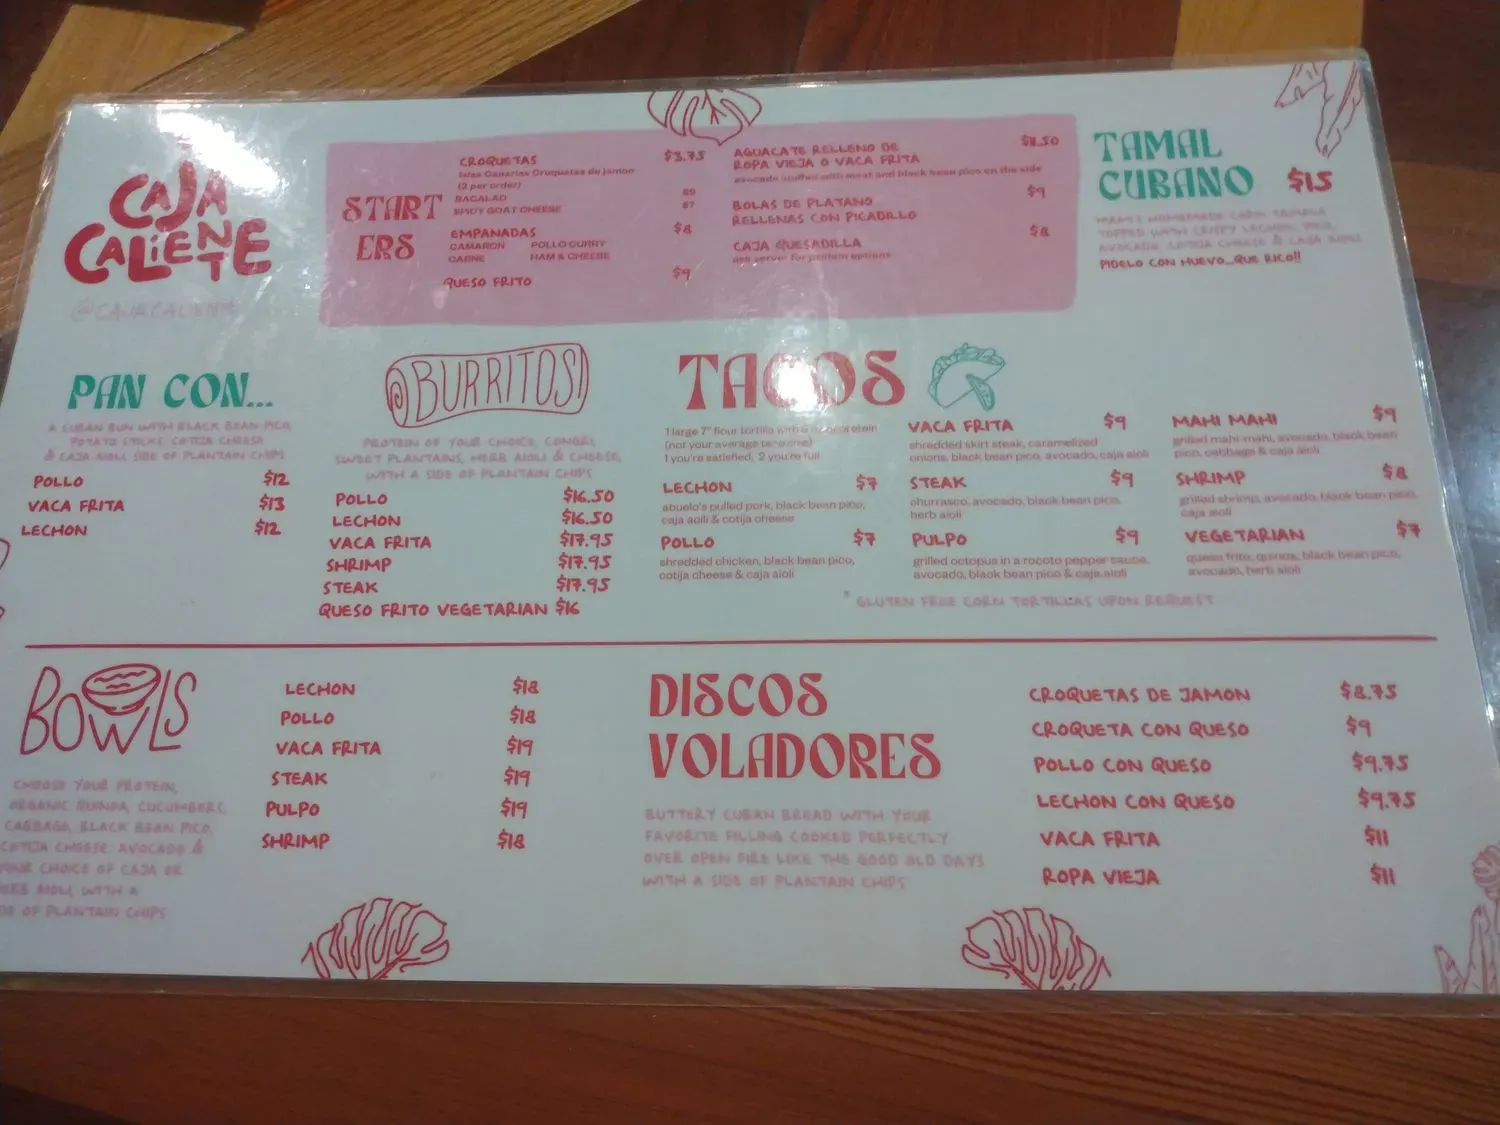 CAJA
CALIENTE
@CAJACALIENTE
STARTERS
CROQUETAS $3.75
Islas Canarias Croquetas de jamon
(2 per order)
BACALAO $9
SPICY GOAT CHEESE $7
EMPANADAS $8
CAMARON POLLO CURRY
CARNE HAM & CHEESE
QUESO FRITO $9
AGUACATE RELLENO DE
ROPA VIEJA O VACA FRITA
avocado stuffed with meat and black bean pico on the side
BOLAS DE PLATANO $9
RELLENAS CON PICADILLO
CAJA QUESADILLA $8
ask server for protein options
TAMAL
CUBANO $15
HOMEMADE CORN TAMALE
TOPPED WITH CRISPY LECHON, PICO,
AVOCADO, COTIJA CHEESE & CAJA AIOLI
PIDELO CON HUEVO...QUE RICO!!
PAN CON...
A CUBAN BUN WITH BLACK BEAN PICO,
POTATO STICKS, COTIJA CHEESE
& CAJA AIOLI. SIDE OF PLANTAIN CHIPS
POLLO $12
VACA FRITA $13
LECHON $12
BURRITOS
PROTEIN OF YOUR CHOICE, CONGRI,
SWEET PLANTAINS, HERB AIOLI & CHEESE,
WITH A SIDE OF PLANTAIN CHIPS
POLLO $16.50
LECHON $16.50
VACA FRITA $17.95
SHRIMP $17.95
STEAK $17.95
QUESO FRITO VEGETARIAN $16
TACOS
1 large 7" flour tortilla with protein
(not your average taco one)
1 you're satisfied, 2 you're full
LECHON $7
abuelo's pulled pork, black bean pico,
caja aoili & cotija cheese
POLLO $7
shredded chicken, black bean pico,
cotija cheese & caja aioli
VACA FRITA $9
shredded skirt steak, caramelized
onions, black bean pico, avocado, caja aioli
STEAK $9
churrasco, avocado, black bean pico,
herb aioli
PULPO $9
grilled octopus in a rocoto pepper sauce,
avocado, black bean pico & caja aioli
MAHI MAHI $9
grilled mahi-mahi, avocado, black bean
pico, cabbage & caja aioli
SHRIMP $8
grilled shrimp, avocado, black bean pico,
caja aioli
VEGETARIAN $7
queso frito, quinoa, black bean pico,
avocado, herb aioli
* GLUTEN FREE CORN TORTILLAS UPON REQUEST
BOWLS
CHOOSE YOUR PROTEIN,
ORGANIC QUINOA, CUCUMBERS,
CABBAGE, BLACK BEAN PICO,
COTIJA CHEESE, AVOCADO &
YOUR CHOICE OF CAJA OR
HERB AIOLI, WITH A
SIDE OF PLANTAIN CHIPS
LECHON $18
POLLO $18
VACA FRITA $19
STEAK $19
PULPO $19
SHRIMP $18
DISCOS
VOLADORES
BUTTERY CUBAN BREAD WITH YOUR
FAVORITE FILLING COOKED PERFECTLY
OVER OPEN FIRE LIKE THE GOOD OLD DAYS
WITH A SIDE OF PLANTAIN CHIPS
CROQUETAS DE JAMON $8.75
CROQUETA CON QUESO $9
POLLO CON QUESO $9.75
LECHON CON QUESO $9.75
VACA FRITA $11
ROPA VIEJA $11